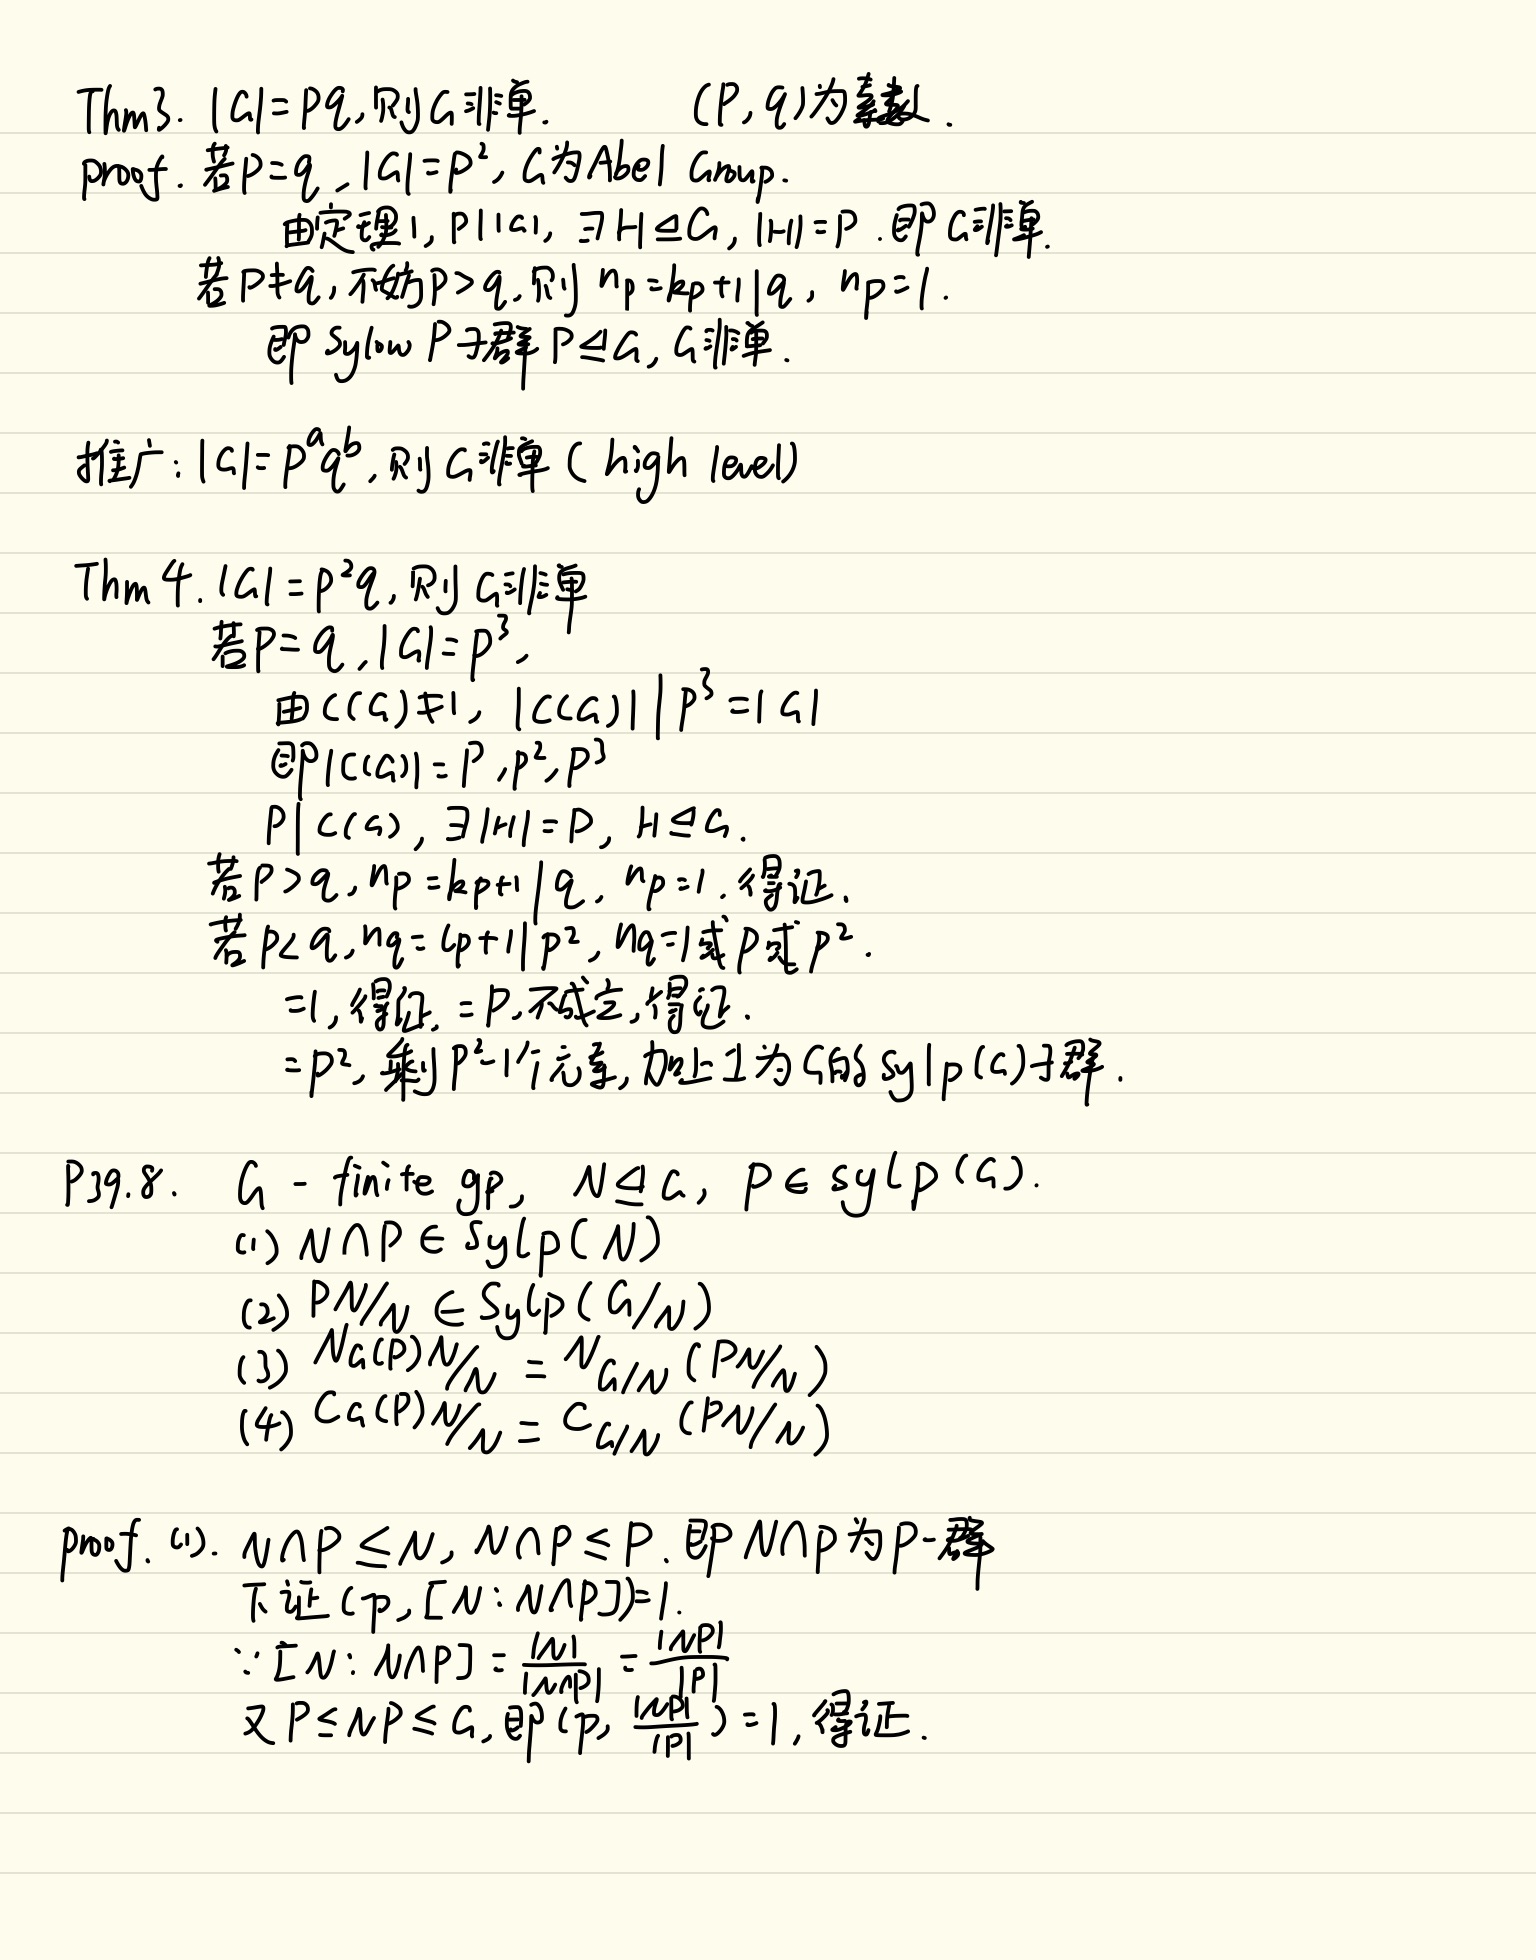 Thm3. |G|=pq,则G非单. (p,q)为素数.
proof. 若p=q,|G|=p²,G为Abel Group.
由定理1,p||G|,∃H⊴G,|H|=p.即G非单.
若p≠q,不妨p>q,则 n_p=kp+1|q, n_p=1.
即 Sylow P子群 P⊴G,G非单.
推广:|G|=p^a q^b,则G非单(high level)
Thm 4.|G|=p²q,则G非单
若p=q,|G|=p³,
由C(G)≠1, |C(G)| | p³=|G|
即|C(G)|=p,p²,p³
p|C(G),∃|H|=p, H⊴G.
若p>q,n_p=kp+1|q, n_p=1.得证.
若p<q,n_q=lp+1|p²,n_q=1或p或p².
=1,得证.=p,不成立,得证.
=p²,剩p²-1个元素,加上1为G的Syl_p(G)子群.
P39.8. G - finite gp, N⊴G, P∈Syl_p(G).
(1) N∩P∈Syl_p(N)
(2) PN/N ∈Syl_p(G/N)
(3) N_G(P)N/N = N_{G/N}(PN/N)
(4) C_G(P)N/N = C_{G/N}(PN/N)
proof. (1). N∩P≤N, N∩P≤P.即N∩P为P-群
下证(p,[N:N∩P])=1.
∵[N:N∩P]=|N|/|N∩P|=|NP|/|P|
又P≤NP≤G,即(p,|NP|/|P|)=1,得证.